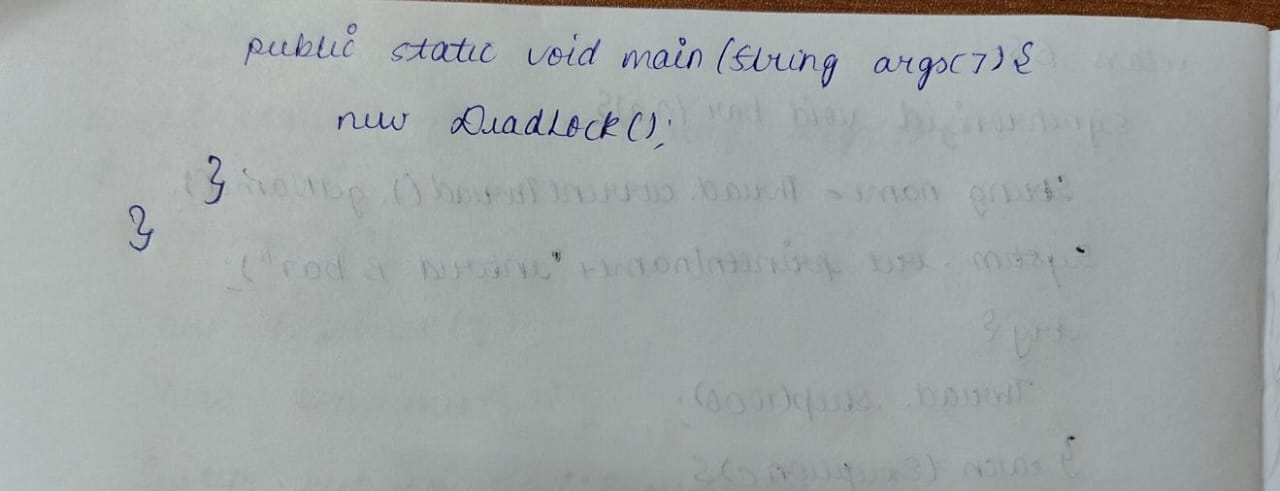 public static void main (String args[]) {
new DeadLock();
}
}